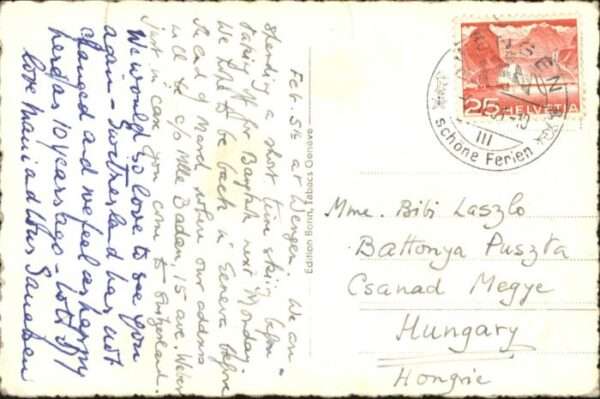 Feb. 5th at Wengen. We are
spending a short time skiing before
taking off for Bangkok next Monday.
We hope to be back in Geneva before
the end of March where our address
will be c/o Mlle Badan, 15 ave. Weber
Just in case you come to Switzerland.
We would so love to see you
again - Switzerland has not
changed and we feel as happy
here as 10 years ago - lots of
love
Edition Bonn, Tabacs Genève
25 HELVETIA
WENGEN
III
schöne Ferien
Mme. Bibi Laszlo
Battonya Puszta
Csanad Megye
Hungary
Hongrie